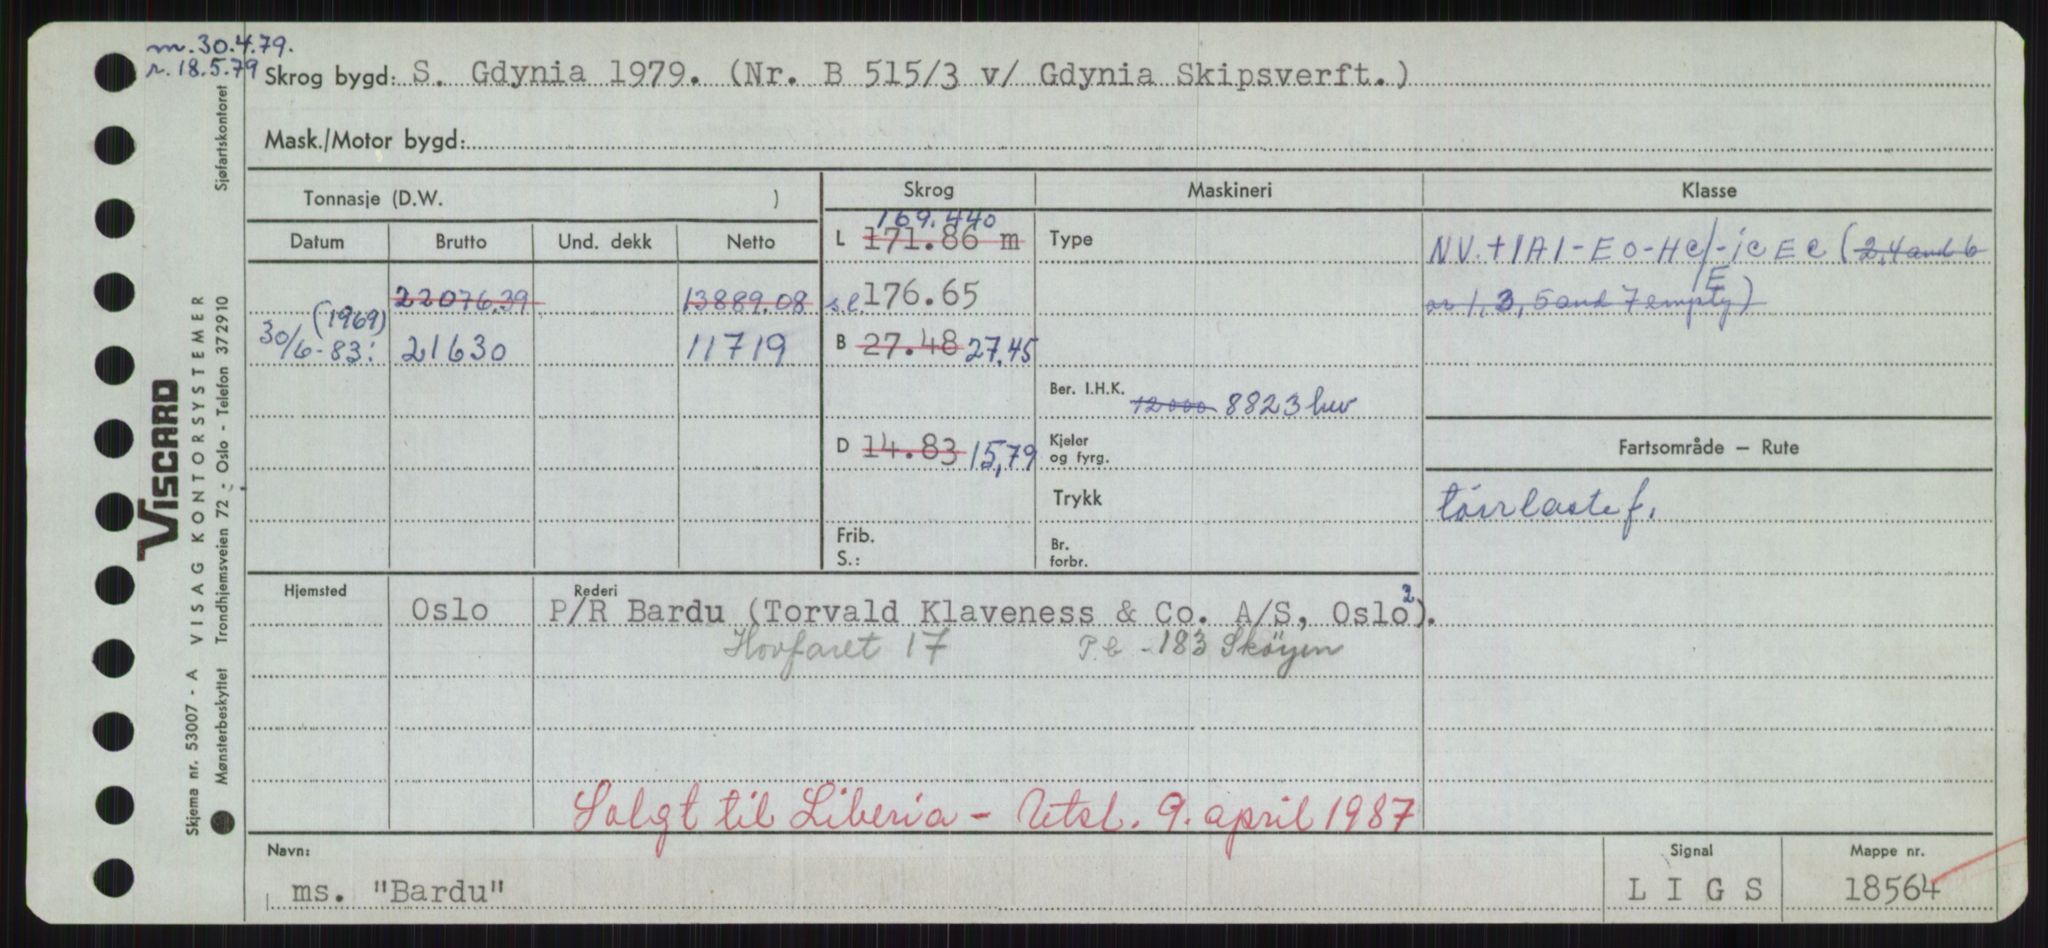 m. 30.4.79.
r. 18.5.79
Skrog bygd: S. Gdynia 1979. (Nr. B 515/3 v/ Gdynia Skipsverft.)
Mask./Motor bygd:
Tonnasje (D.W. )
Skrog
Maskineri
Klasse
Datum
Brutto
Und. dekk
Netto
169.440
L 171.86 m
Type
NV. +1A1-EO-HC/E-ICE C (2,4 and 6
or 1, 3, 5 and 7 empty)
22076.39
13889.08
s.l. 176.65
(1969)
30/6-83:
21630
11719
B 27.48 27,45
Ber. I.H.K. 12000 8823 kw
D 14.83 15,79
Kjeler
og fyrg.
Fartsområde – Rute
Trykk
törrlastef.
Frib.
S.:
Br.
forbr.
Hjemsted
Oslo
Rederi
P/R Bardu (Torvald Klaveness & Co. A/S, Oslo 2).
Hovfaret 17 P.b - 183 Sköyen
Solgt til Liberia - Utsl. 9. april 1987
Navn:
ms. "Bardu"
Signal
L I G S
Mappe nr.
18564
VISCARD
VISAG KONTORSYSTEMER
Skjema nr. 53007 - A
Mønsterbeskyttet Trondhjemsveien 72 - Oslo - Telefon 372910
Sjøfartskontoret